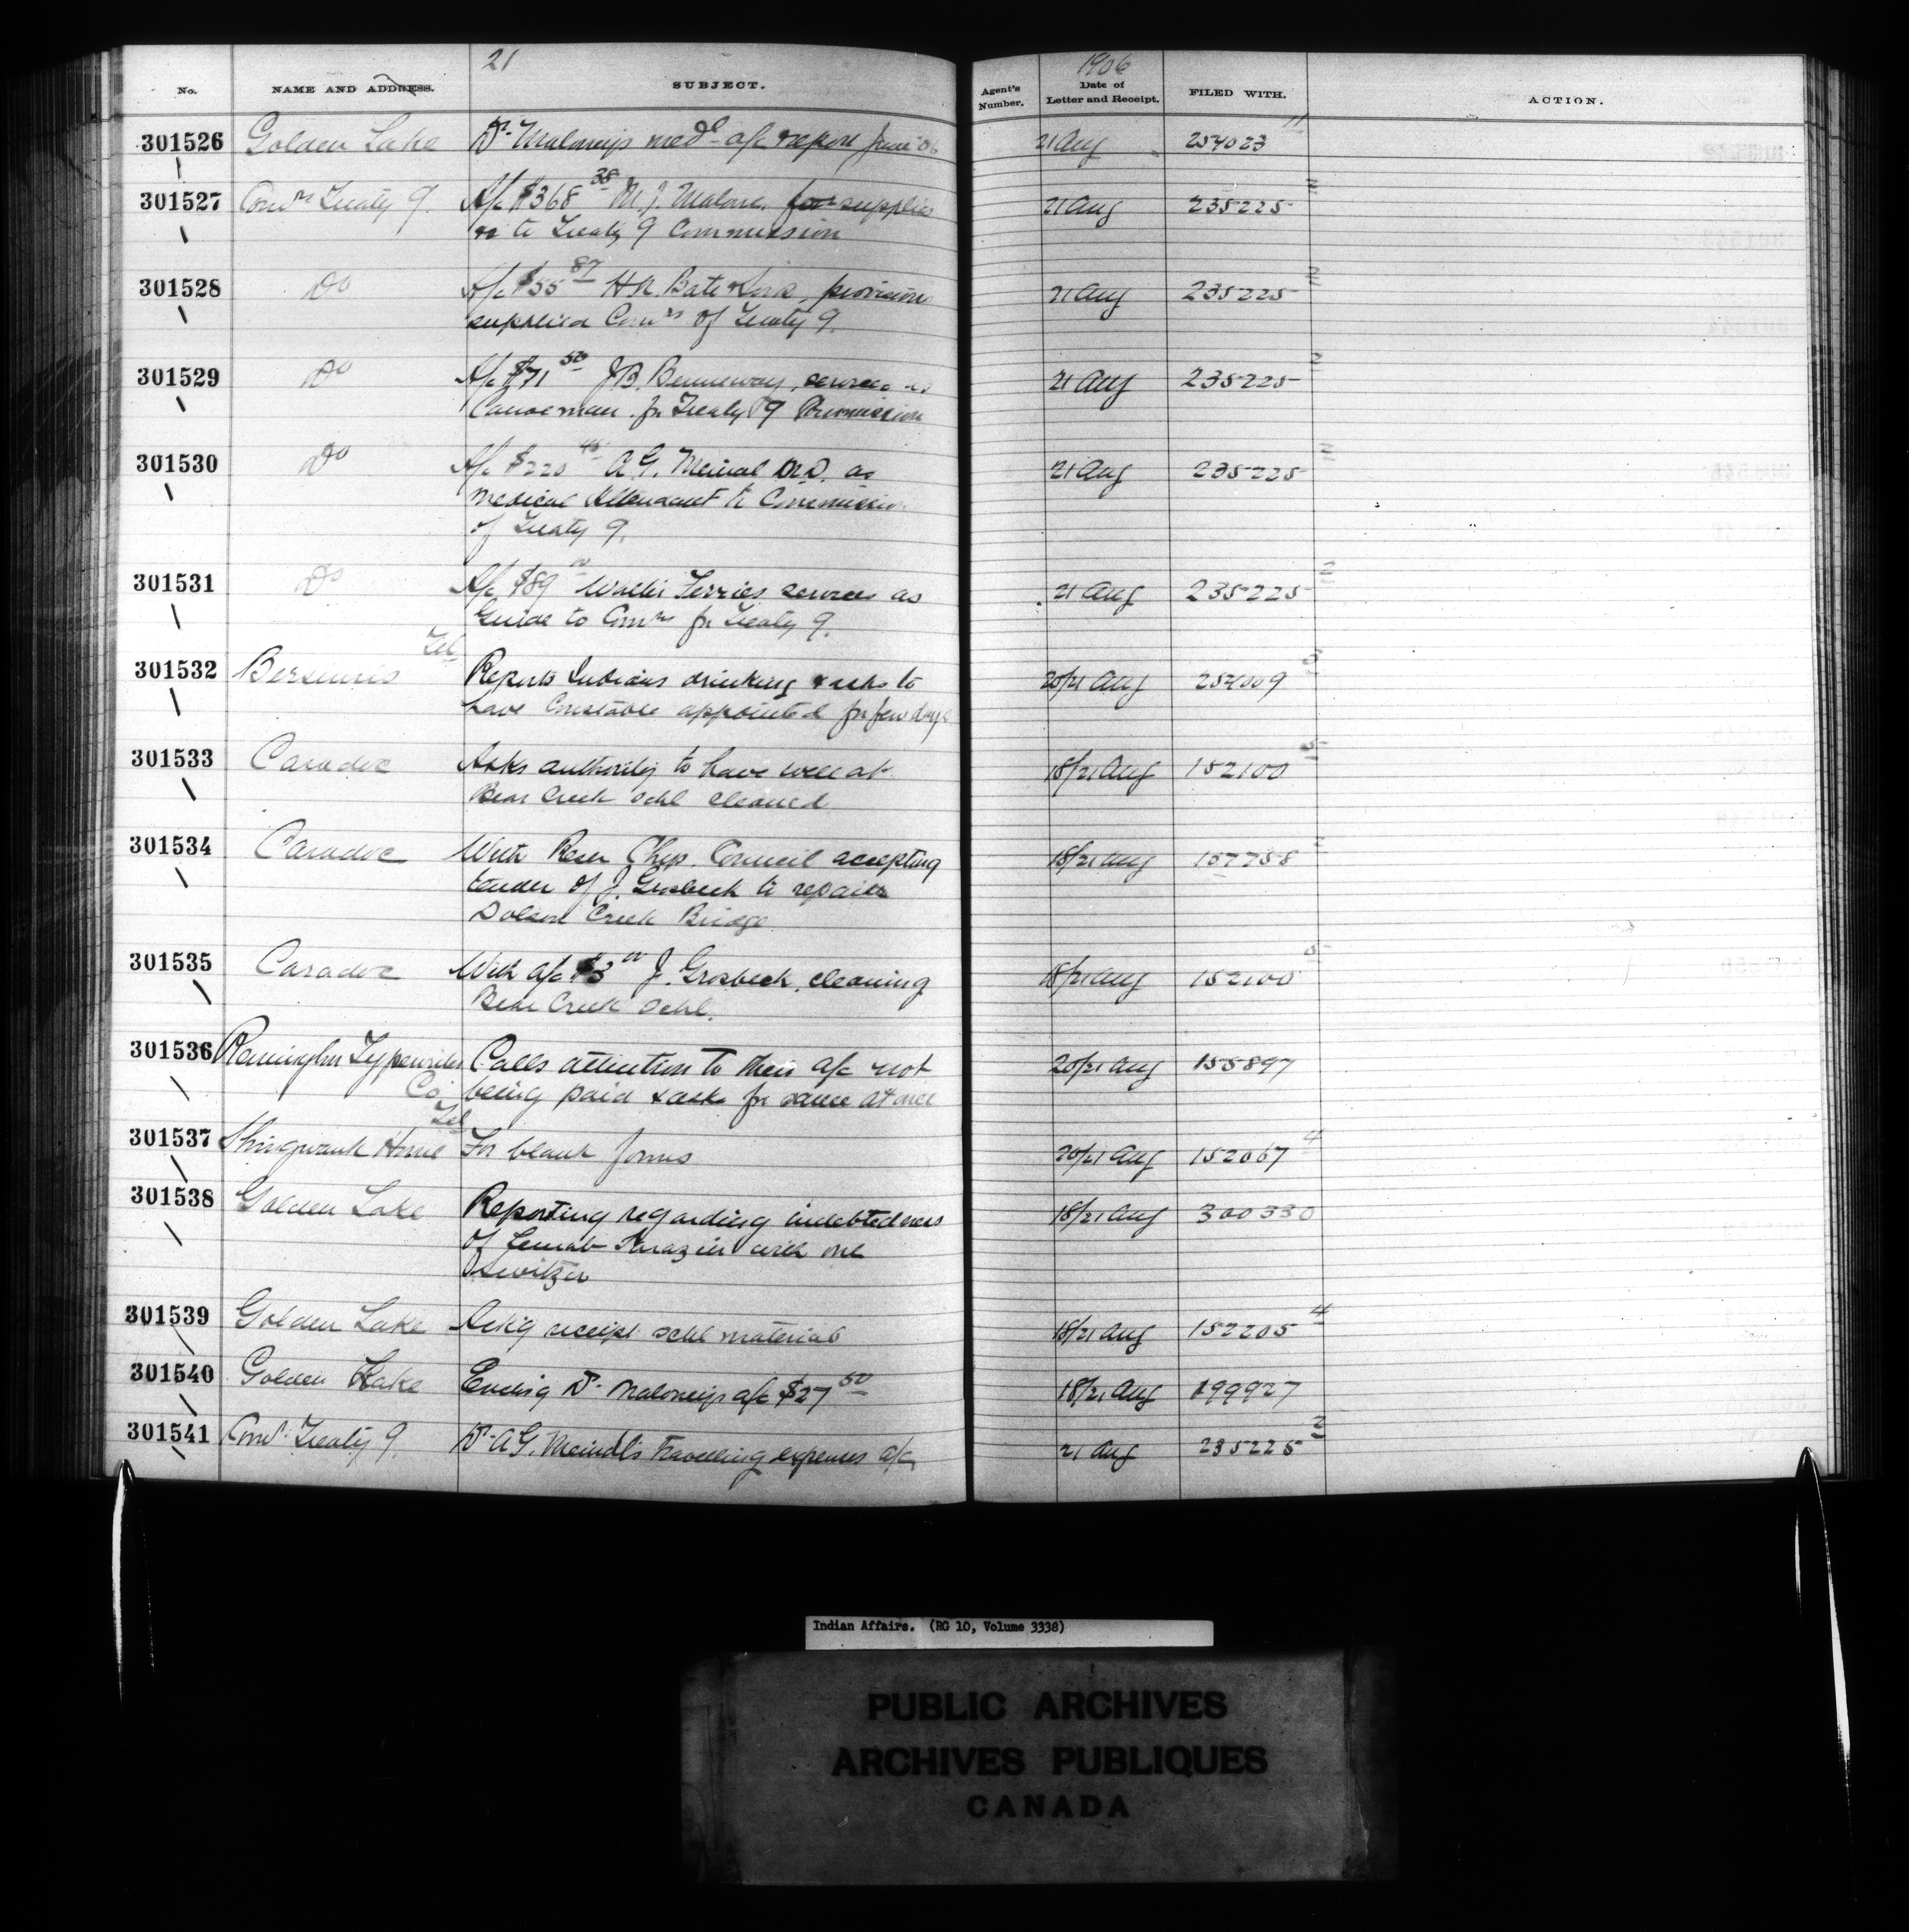 21
1906
No. NAME AND ADDRESS. SUBJECT. Agent's Number. Date of Letter and Receipt. FILED WITH. ACTION.
301526 Golden Lake Dr. Maloney's medl a/c & report June '06 21 Aug 254023 11
301527 Comrs Treaty 9. A/c $368 38 M.J. Malone, for supplies 21 Aug 235225 2
to Treaty 9 Commission
301528 Do A/c $55 87 H.N. Bate & Sons, provisions 21 Aug 235225 2
supplied Comrs of Treaty 9.
301529 Do A/c $71 50 J.B. Benneway, services as 21 Aug 235225 2
Canoeman for Treaty 9 Commission
301530 Do A/c $220 45 A.G. Meindl M.D. as 21 Aug 235225 2
Medical Attendant to Commission
of Treaty 9.
301531 Do A/c $89 Walter Ferries services as 21 Aug 235225 2
Guide to Comrs for Treaty 9.
301532 Bersimis Tel Reports Indians drinking & asks to 20/21 Aug 254009 3
have Constable appointed for few days
301533 Caradoc Asks authority to have well at 18/21 Aug 152100 5
Bear Creek Schl cleaned
301534 Caradoc With Resn Chip. Council accepting 18/21 Aug 157758 2
tender of J. Grosbeck to repair
Dolson Creek Bridge
301535 Caradoc With a/c $3 00 J. Grosbeck, cleaning 18/21 Aug 152100 5
Bear Creek Schl.
301536 Remington Typewriter Calls attention to their a/c not 20/21 Aug 155897
Co. being paid & asks for same at once
301537 Shingwauk Home Tel For blank forms 20/21 Aug 152067 4
301538 Golden Lake Reporting regarding indebtedness 18/21 Aug 300330
of with one
301539 Golden Lake Ackg receipt schl material 18/21 Aug 152205 4
301540 Golden Lake Enclsg Dr. Maloney's a/c $27 50 18/21 Aug 199927
301541 Comrs Treaty 9. Dr. A.G. Meindl's travelling expenses a/c 21 Aug 235225 2
Indian Affairs. (RG 10, Volume 3338)
PUBLIC ARCHIVES
ARCHIVES PUBLIQUES
CANADA